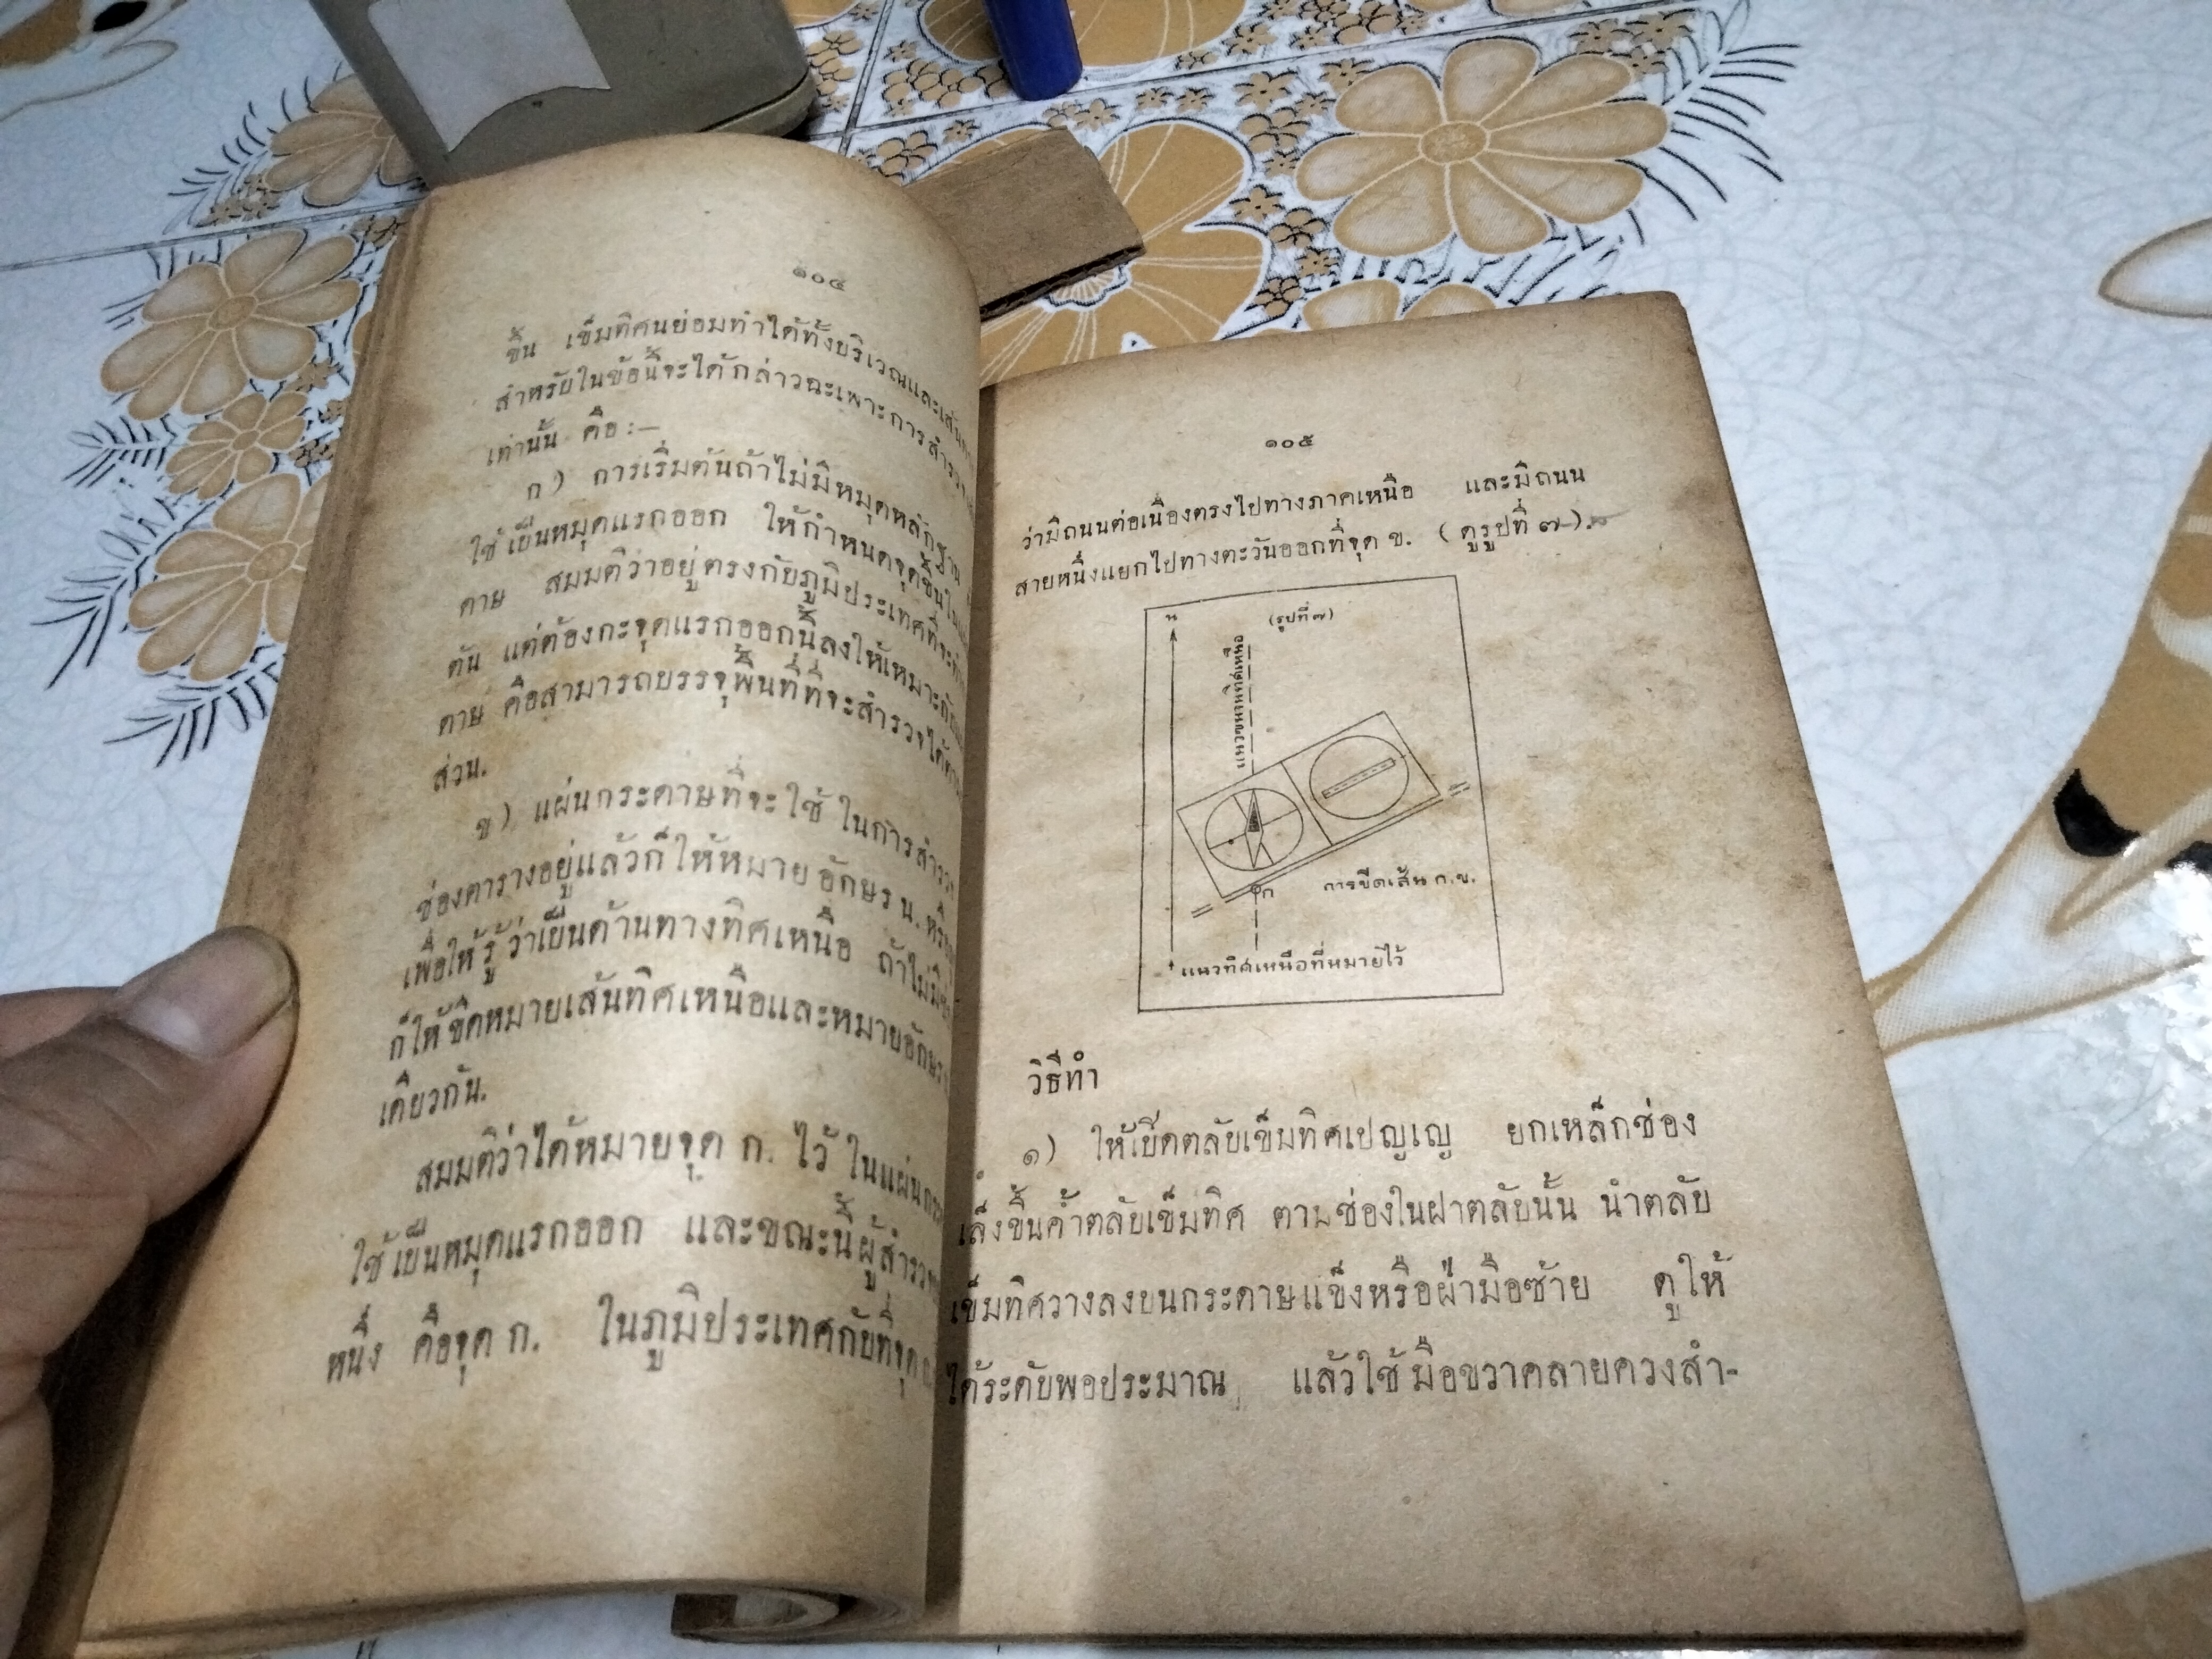 ๑๐๔
ขึ้น เข็มทิศนย่อมทำได้ทั้งบริเวณและเส้น
สำหรับในข้อนี้จะได้กล่าวฉะเพาะการสำรวจ
เท่านั้น คือ :—
ก) การเริ่มต้นถ้าไม่มีหมุดหลักฐาน
ใช้เป็นหมุดแรกออก ให้กำหนดจุดขึ้นใน
ดาษ สมมติว่าอยู่ตรงกับภูมิประเทศที่จะ
ต้น แต่ต้องกะจุดแรกออกนี้ลงให้เหมาะ
ดาษ คือสามารถบรรจุพื้นที่ที่จะสำรวจได้
ส่วน.
ข) แผ่นกระดาษที่จะใช้ในการสำรวจ
ช่องตารางอยู่แล้วก็ให้หมายอักษร น.
เพื่อให้รู้ว่าเป็นด้านทางทิศเหนือ ถ้าไม่มี
ก็ให้ขีดหมายเส้นทิศเหนือและหมายอักษร
เดียวกัน.
สมมติว่าได้หมายจุด ก. ไว้ในแผ่น
ใช้เป็นหมุดแรกออก และขณะนี้ผู้สำรวจ
หนึ่ง คือจุด ก. ในภูมิประเทศกับที่จุด
๑๐๕
ว่ามีถนนต่อเนื่องตรงไปทางภาคเหนือ และมีถนน
สายหนึ่งแยกไปทางตะวันออกที่จุด ข. (ดูรูปที่ ๗)
น
(รูปที่ ๗)
แนวขนานทิศเหนือ
ก
การขีดเส้น ก.ข.
แนวทิศเหนือที่หมายไว้
วิธีทำ
๑) ให้เปิดตลับเข็มทิศเปญเญ ยกเหล็กช่อง
เล็งขึ้นค้ำตลับเข็มทิศ ตามช่องในฝาตลับนั้น นำตลับ
เข็มทิศวางลงบนกระดาษแข็งหรือฝ่ามือซ้าย ดูให้
ได้ระดับพอประมาณ แล้วใช้มือขวาคลายควงสำ-